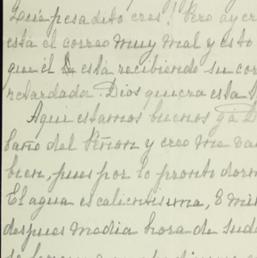 Que pesadito eres! Pero ayer
está el correo muy mal y esto
que él está recibiendo su cor
retardada. Dios quiera esta l
Aquí estamos buenos ya
baño del Peñon y creo me va
bien, pues por lo pronto dorm
El agua es calientisima, 8 mi
despues media hora de sudo